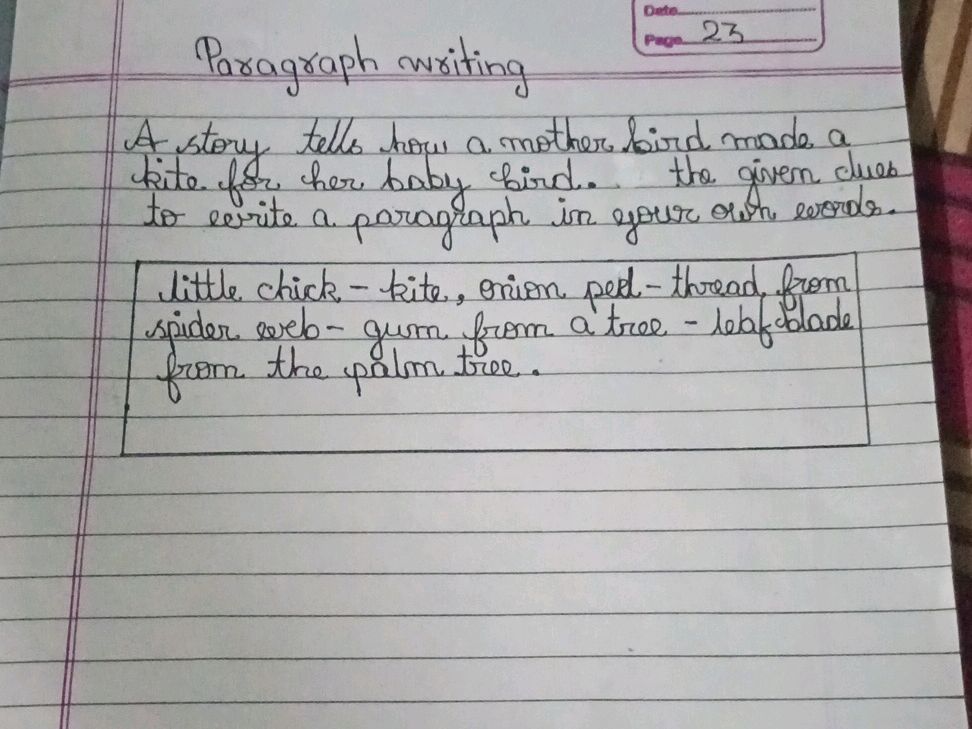 Date
Page 23
Paragraph writing
A story tells how a mother bird made a
kite for her baby bird. the given clues
to write a paragraph in your own words.
little chick - kite, onion peel - thread from
spider web - gum from a tree - leaf blade
from the palm tree.